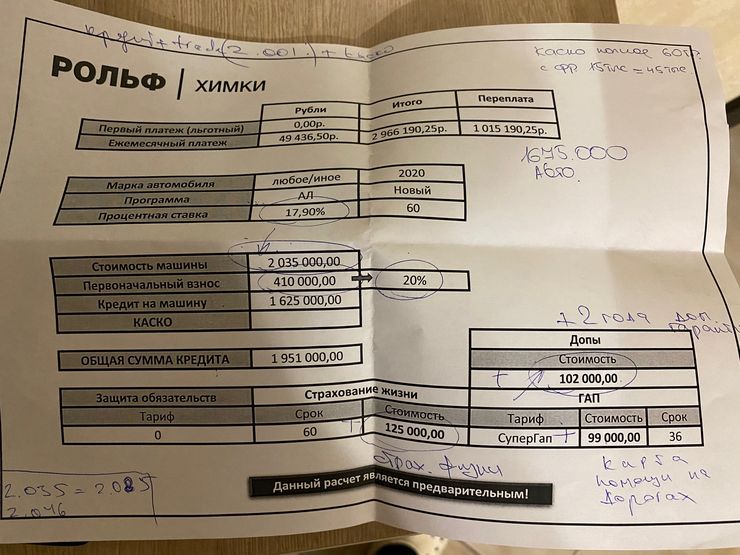 кредит + trade (2.001.) + каско
каско полное 60т.р.
с фр. 15тыс = 45тыс.
РОЛЬФ | ХИМКИ
Рубли Итого Переплата
Первый платеж (льготный) 0,00р.
Ежемесячный платеж 49 436,50р. 2 966 190,25р. 1 015 190,25р.
1675.000
авто.
Марка автомобиля любое/иное 2020
Программа АЛ Новый
Процентная ставка 17,90% 60
Стоимость машины 2 035 000,00
Первоначальный взнос 410 000,00 20%
Кредит на машину 1 625 000,00
КАСКО
+ 2 года доп.
гарант
Допы
Стоимость
+ 102 000,00
ОБЩАЯ СУММА КРЕДИТА 1 951 000,00
Защита обязательств Страхование жизни ГАП
Тариф Срок Стоимость Тариф Стоимость Срок
0 60 + 125 000,00 СуперГап + 99 000,00 36
страх. жизни
карта
помощи на
дорогах
Данный расчет является предварительным!
2.035 = 2.085
2.046